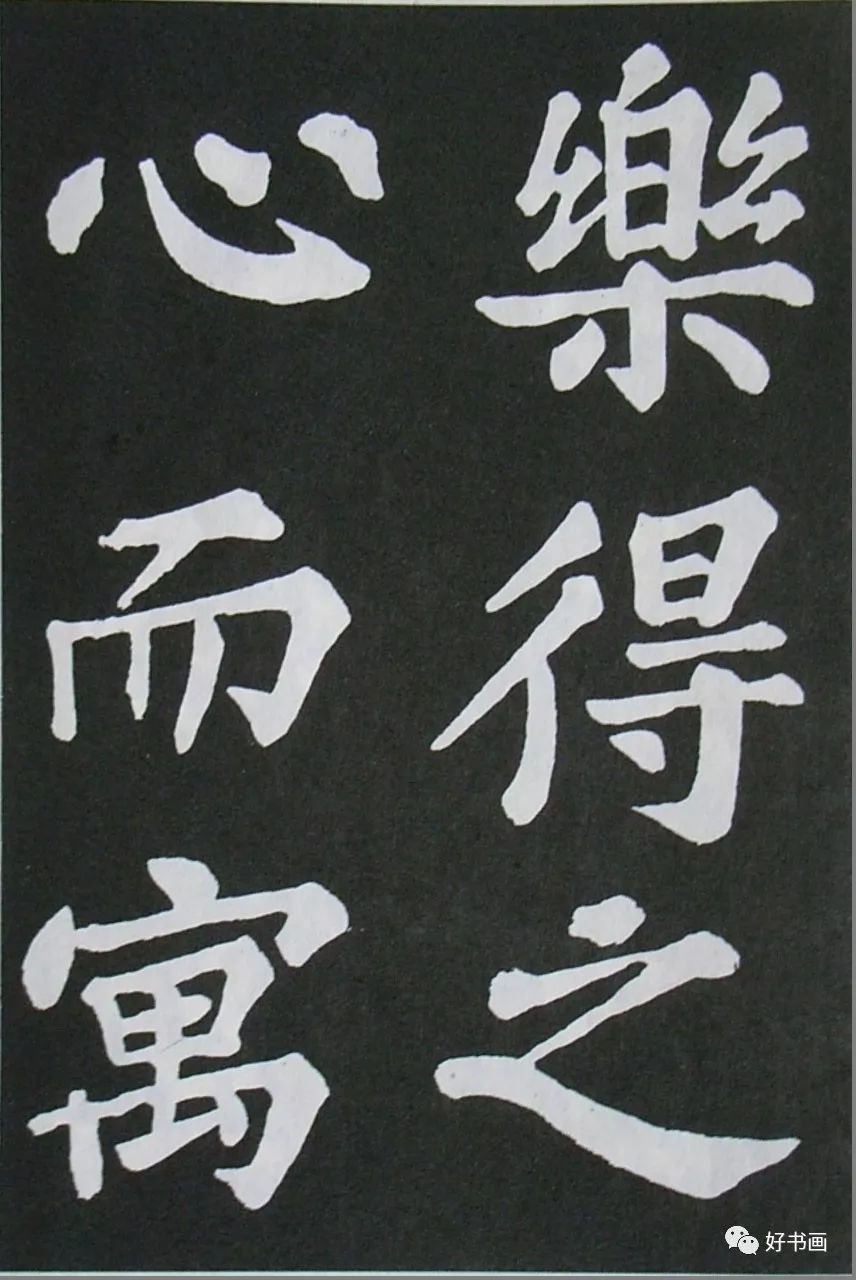 樂得之
心而寓
好书画